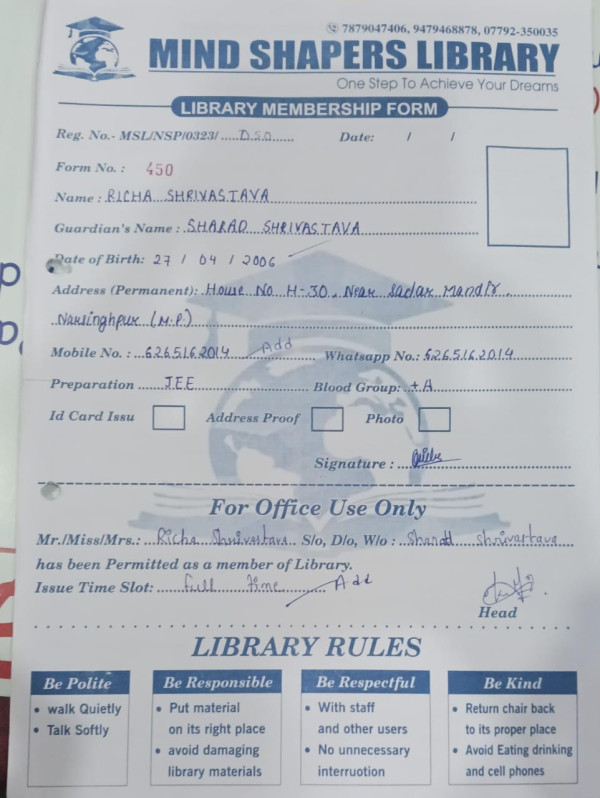 7879047406, 9479468878, 07792-350035
MIND SHAPERS LIBRARY
One Step To Achieve Your Dreams
LIBRARY MEMBERSHIP FORM
Reg. No.- MSL/NSP/0323/.....D.S.O...... Date: / /
Form No. : 450
Name : RICHA SHRIVASTAVA
Guardian's Name : SHARAD SHRIVASTAVA
Date of Birth: 27 / 04 / 2006
Address (Permanent): House No H-30, Near Sadar Mandir
Narsinghpur (M.P.)
Mobile No. : 6265162014 Add Whatsapp No.: 6265162014
Preparation JEE Blood Group: +A
Id Card Issu Address Proof Photo
Signature :
For Office Use Only
Mr./Miss/Mrs.: Richa Shrivastava S/o, D/o, W/o : Sharad shrivastava
has been Permitted as a member of Library.
Issue Time Slot: full time Add
Head
LIBRARY RULES
Be Polite
• walk Quietly
• Talk Softly
Be Responsible
• Put material
on its right place
• avoid damaging
library materials
Be Respectful
• With staff
and other users
• No unnecessary
interruotion
Be Kind
• Return chair back
to its proper place
• Avoid Eating drinking
and cell phones